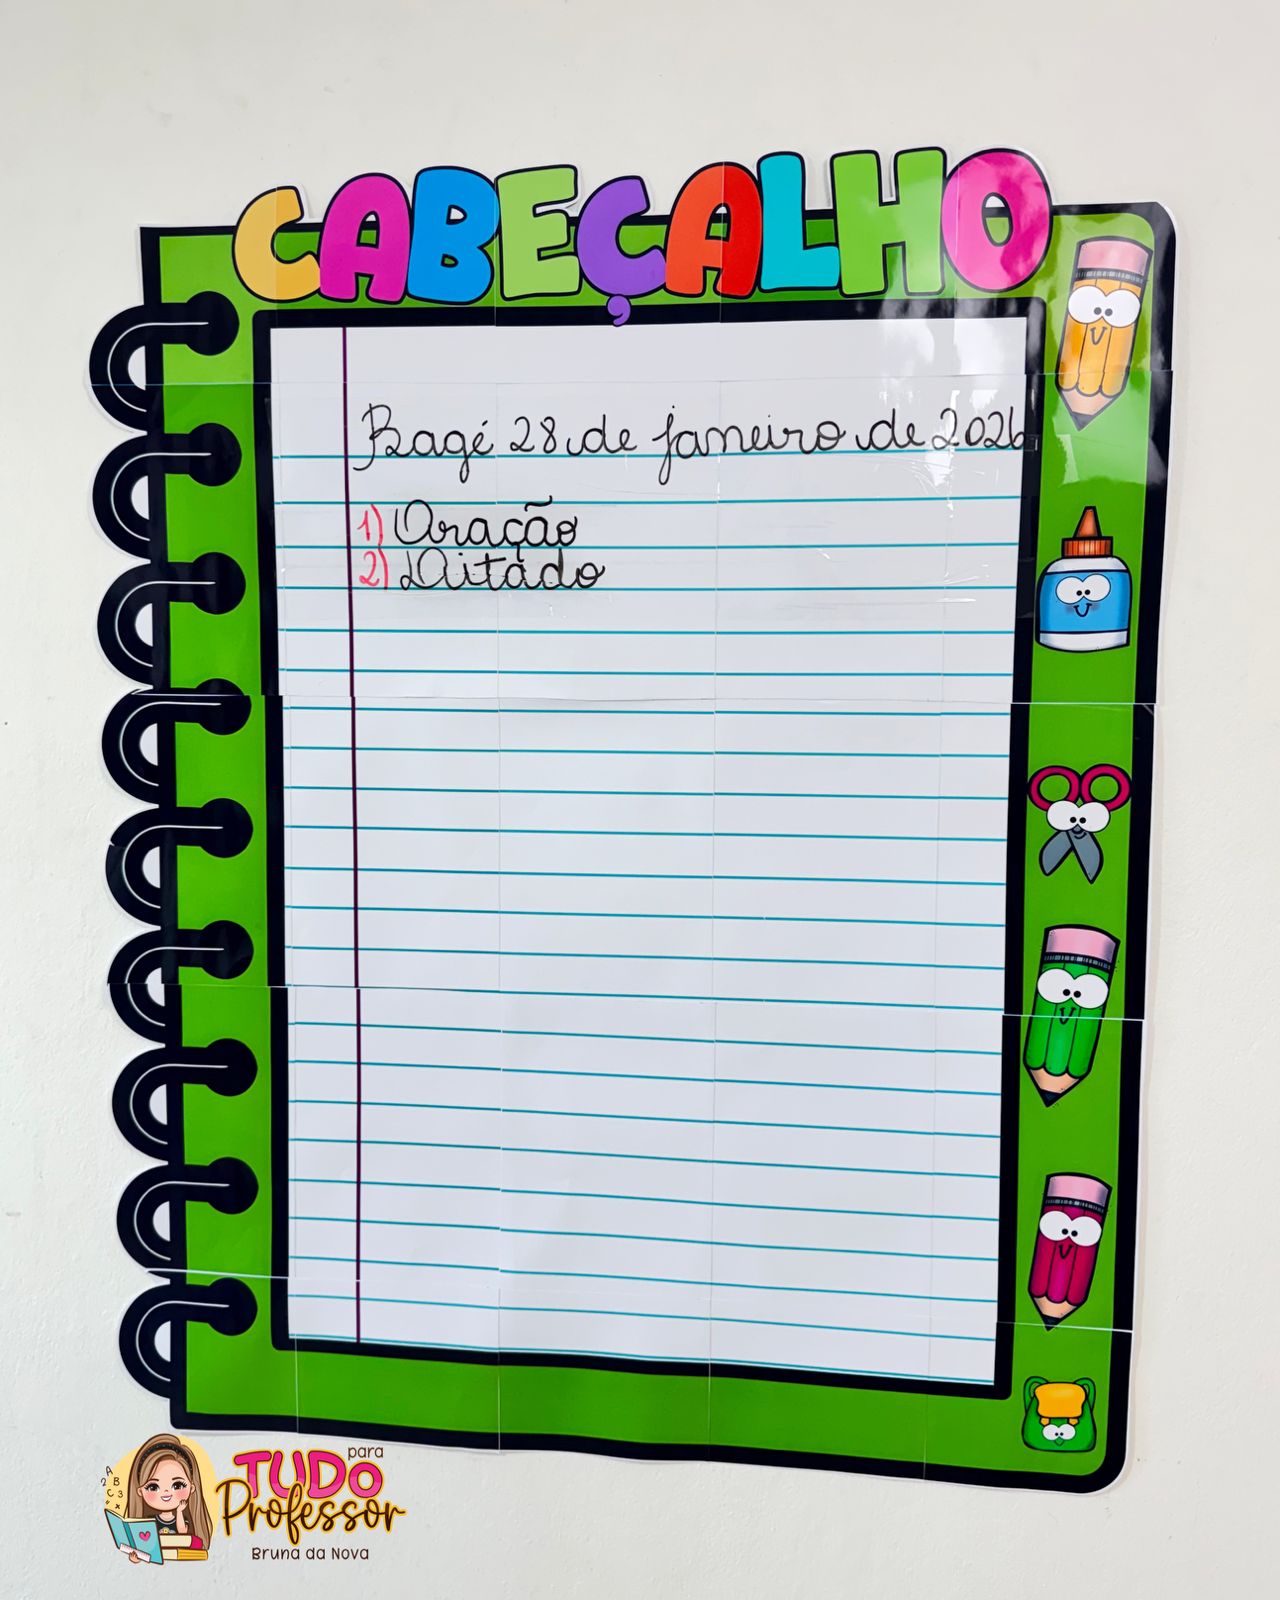 CABEÇALHO
Bagé 28 de janeiro de 2026
1) Oração
2) Ditado
A
2 B
C 3
TUDO para
Professor
Bruna da Nova